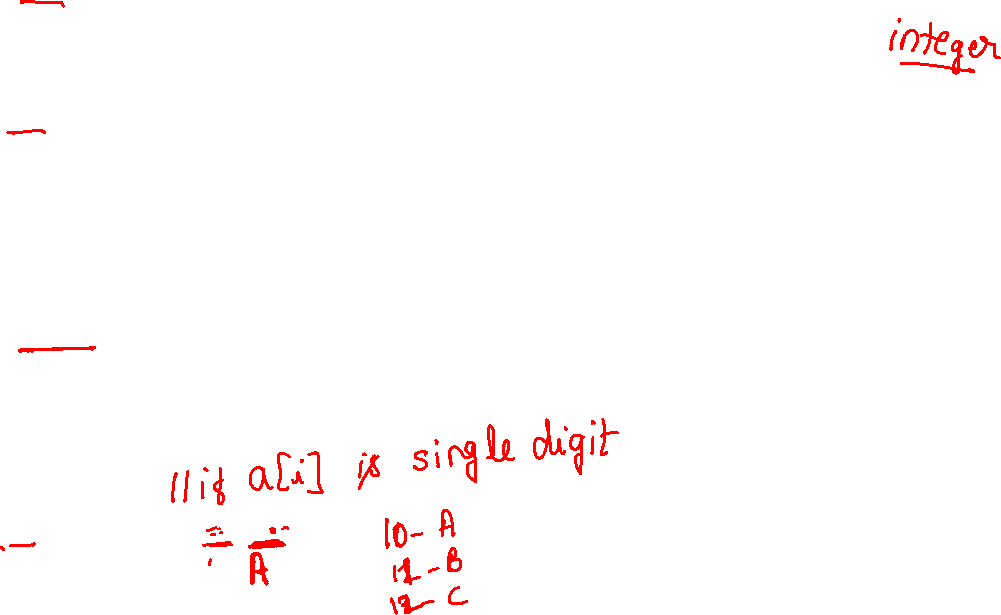 integer
//if a[i] is single digit
10- A
A
11-B
12-C